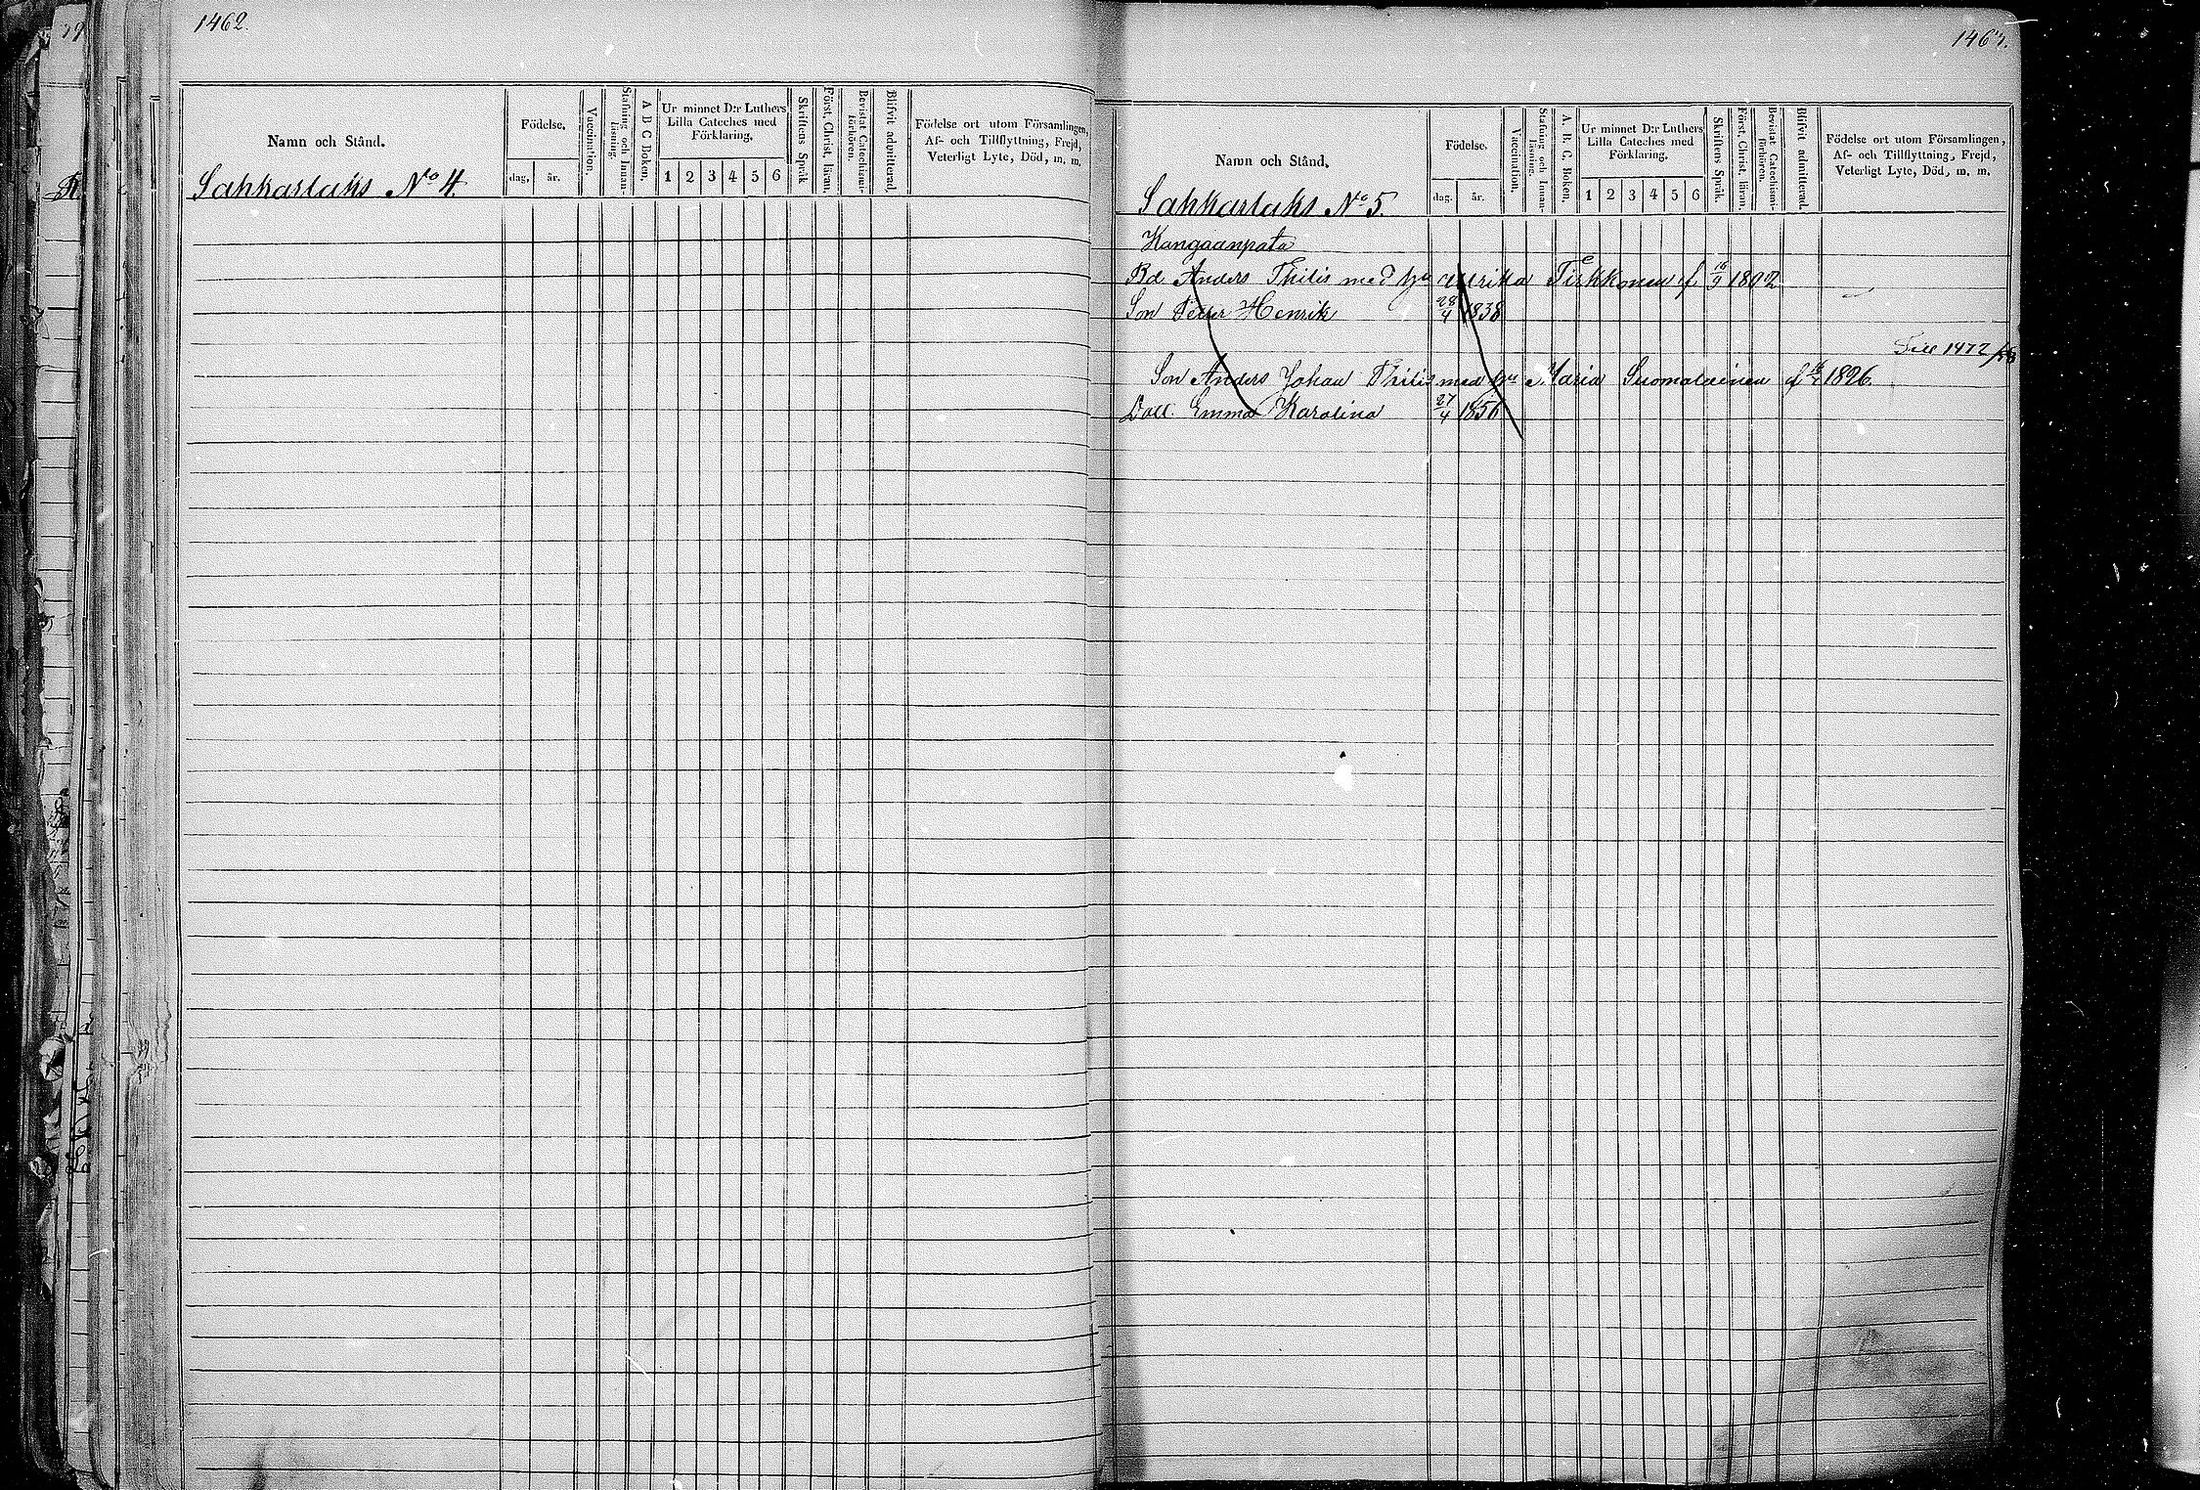 1462.
Namn och Stånd.
Födelse.
dag. år.
Vaccination.
Stafning och Innan-läsning.
A B C Boken.
Ur minnet D:r Luthers
Lilla Cateches med
Förklaring.
1 2 3 4 5 6
Skriftens Språk
Först. Christ. läran.
Bevistat Catechismi-förhören.
Blifvit admitterad.
Födelse ort utom Församlingen,
Af- och Tillflyttning, Frejd,
Veterligt Lyte, Död, m. m.
Sakkarlaks No 4.
146
Namn och Stånd.
Födelse.
dag. år.
Vaccination.
Stafning och Innan-läsning.
A. B. C. Boken.
Ur minnet D:r Luthers
Lilla Cateches med
Förklaring.
1 2 3 4 5 6
Skriftens Språk.
Först. Christ. läran.
Bevistat Catechismi-förhören.
Blifvit admitterad.
Födelse ort utom Församlingen,
Af- och Tillflyttning, Frejd,
Veterligt Lyte, Död, m. m.
Sakkarlaks No 5.
Kangaanpata
Bd. Anders Thilis med hu Ulrika Tirkkonen f. 1802
Son Petter Henrik 28/4 1838
1472/58
Son Anders Johan Thilis med hu Maria Suomalainen f 1826.
Dott. Emma Karolina 27/4 1856